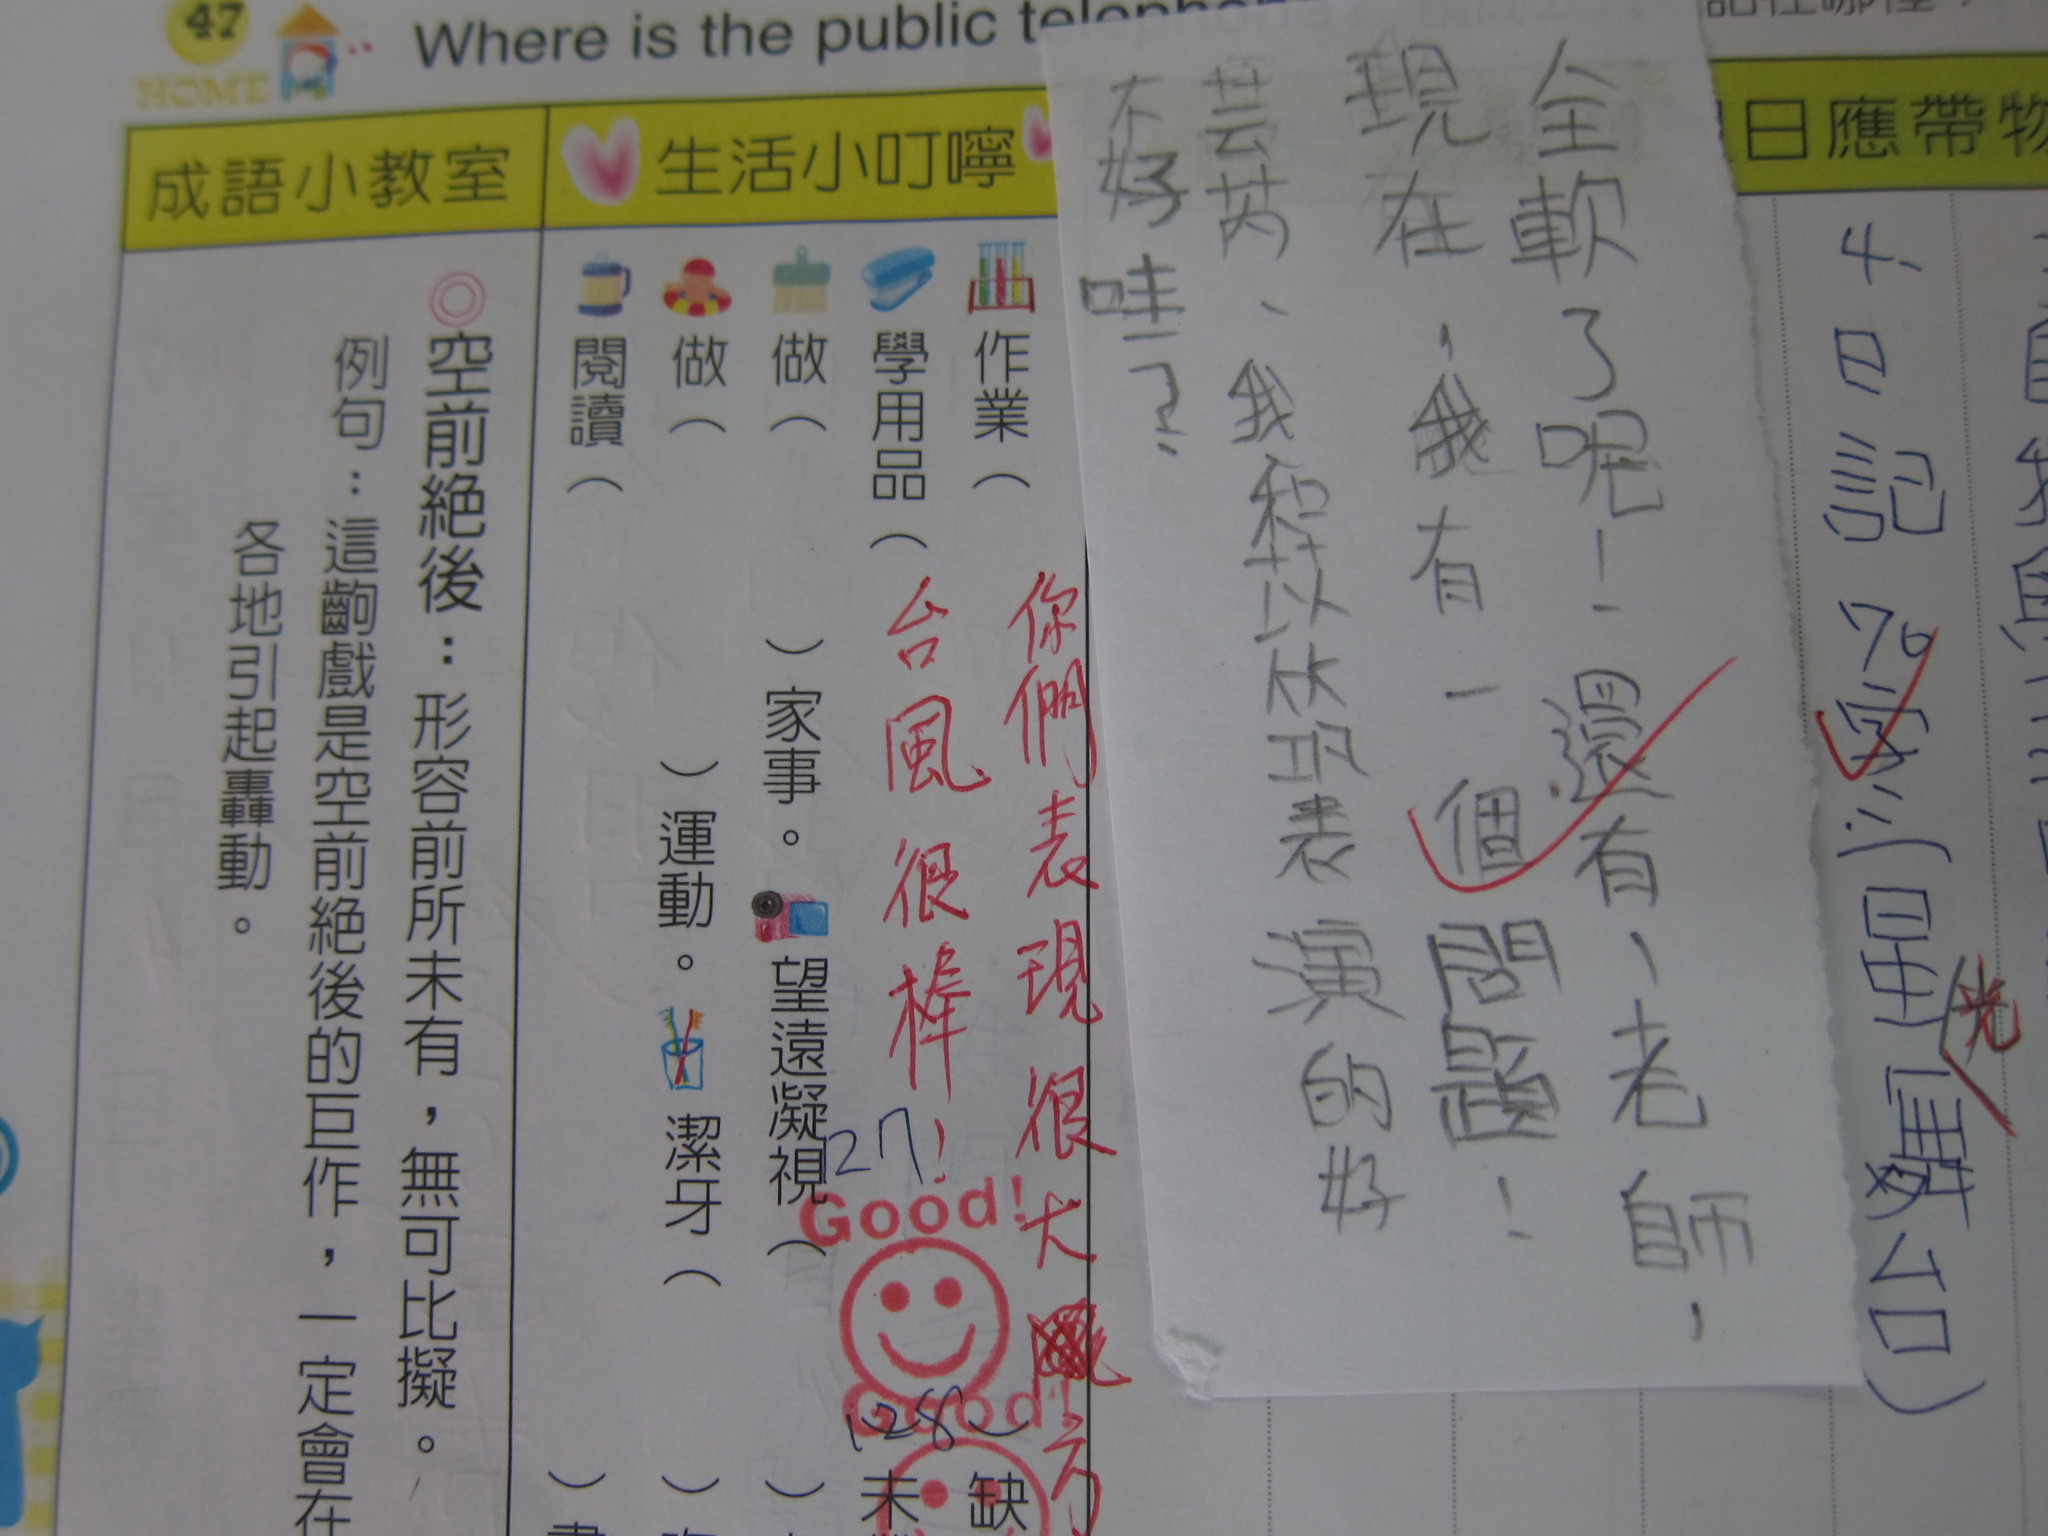 47
HOME
Where is the public telephone
日應帶物
生活小叮嚀
成語小教室
4、日記70字
全軟了呢！還有，老師，
現在，我有一個問題！
芸芮、我和苡忻巩表演的好
不好哇？
作業（
缺
學用品（
未
做（　）家事。
望遠凝視（
做（　）運動。
潔牙（
閱讀（　）
你們表現很大方
台風很棒！
127
Good!
128
Good!
◎空前絕後：形容前所未有，無可比擬。
例句：這齣戲是空前絕後的巨作，一定會在
各地引起轟動。